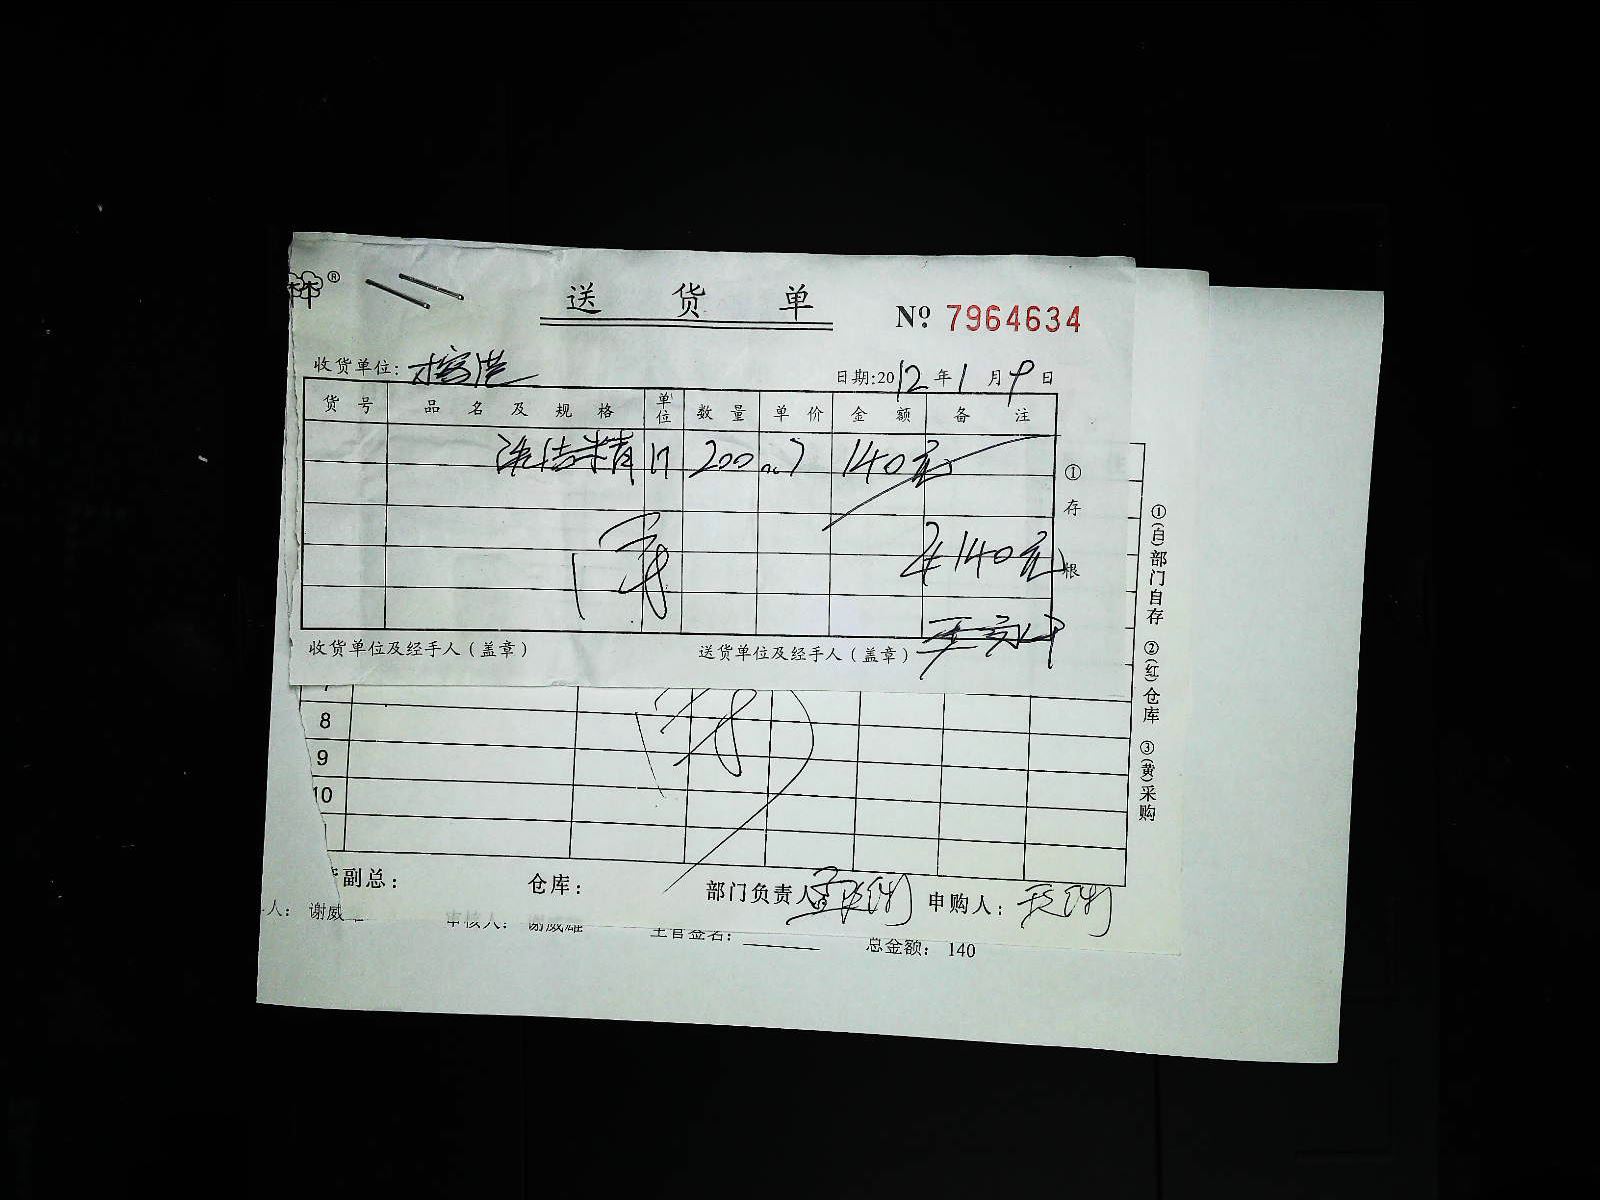 ®
送 货 单
Nº 7964634
收货单位:
日期:2012年1月9日
货 号 品 名 及 规 格 单位 数 量 单 价 金 额 备 注
洗洁精 200 0.7 140元
¥140元
①存根
收货单位及经手人（盖章） 送货单位及经手人（盖章）
①(白)部门自存 ②(红)仓库 ③(黄)采购
8
9
10
副总: 仓库: 部门负责人 申购人:
人: 谢威 审核人: 谢威雄 主管签名: 总金额: 140